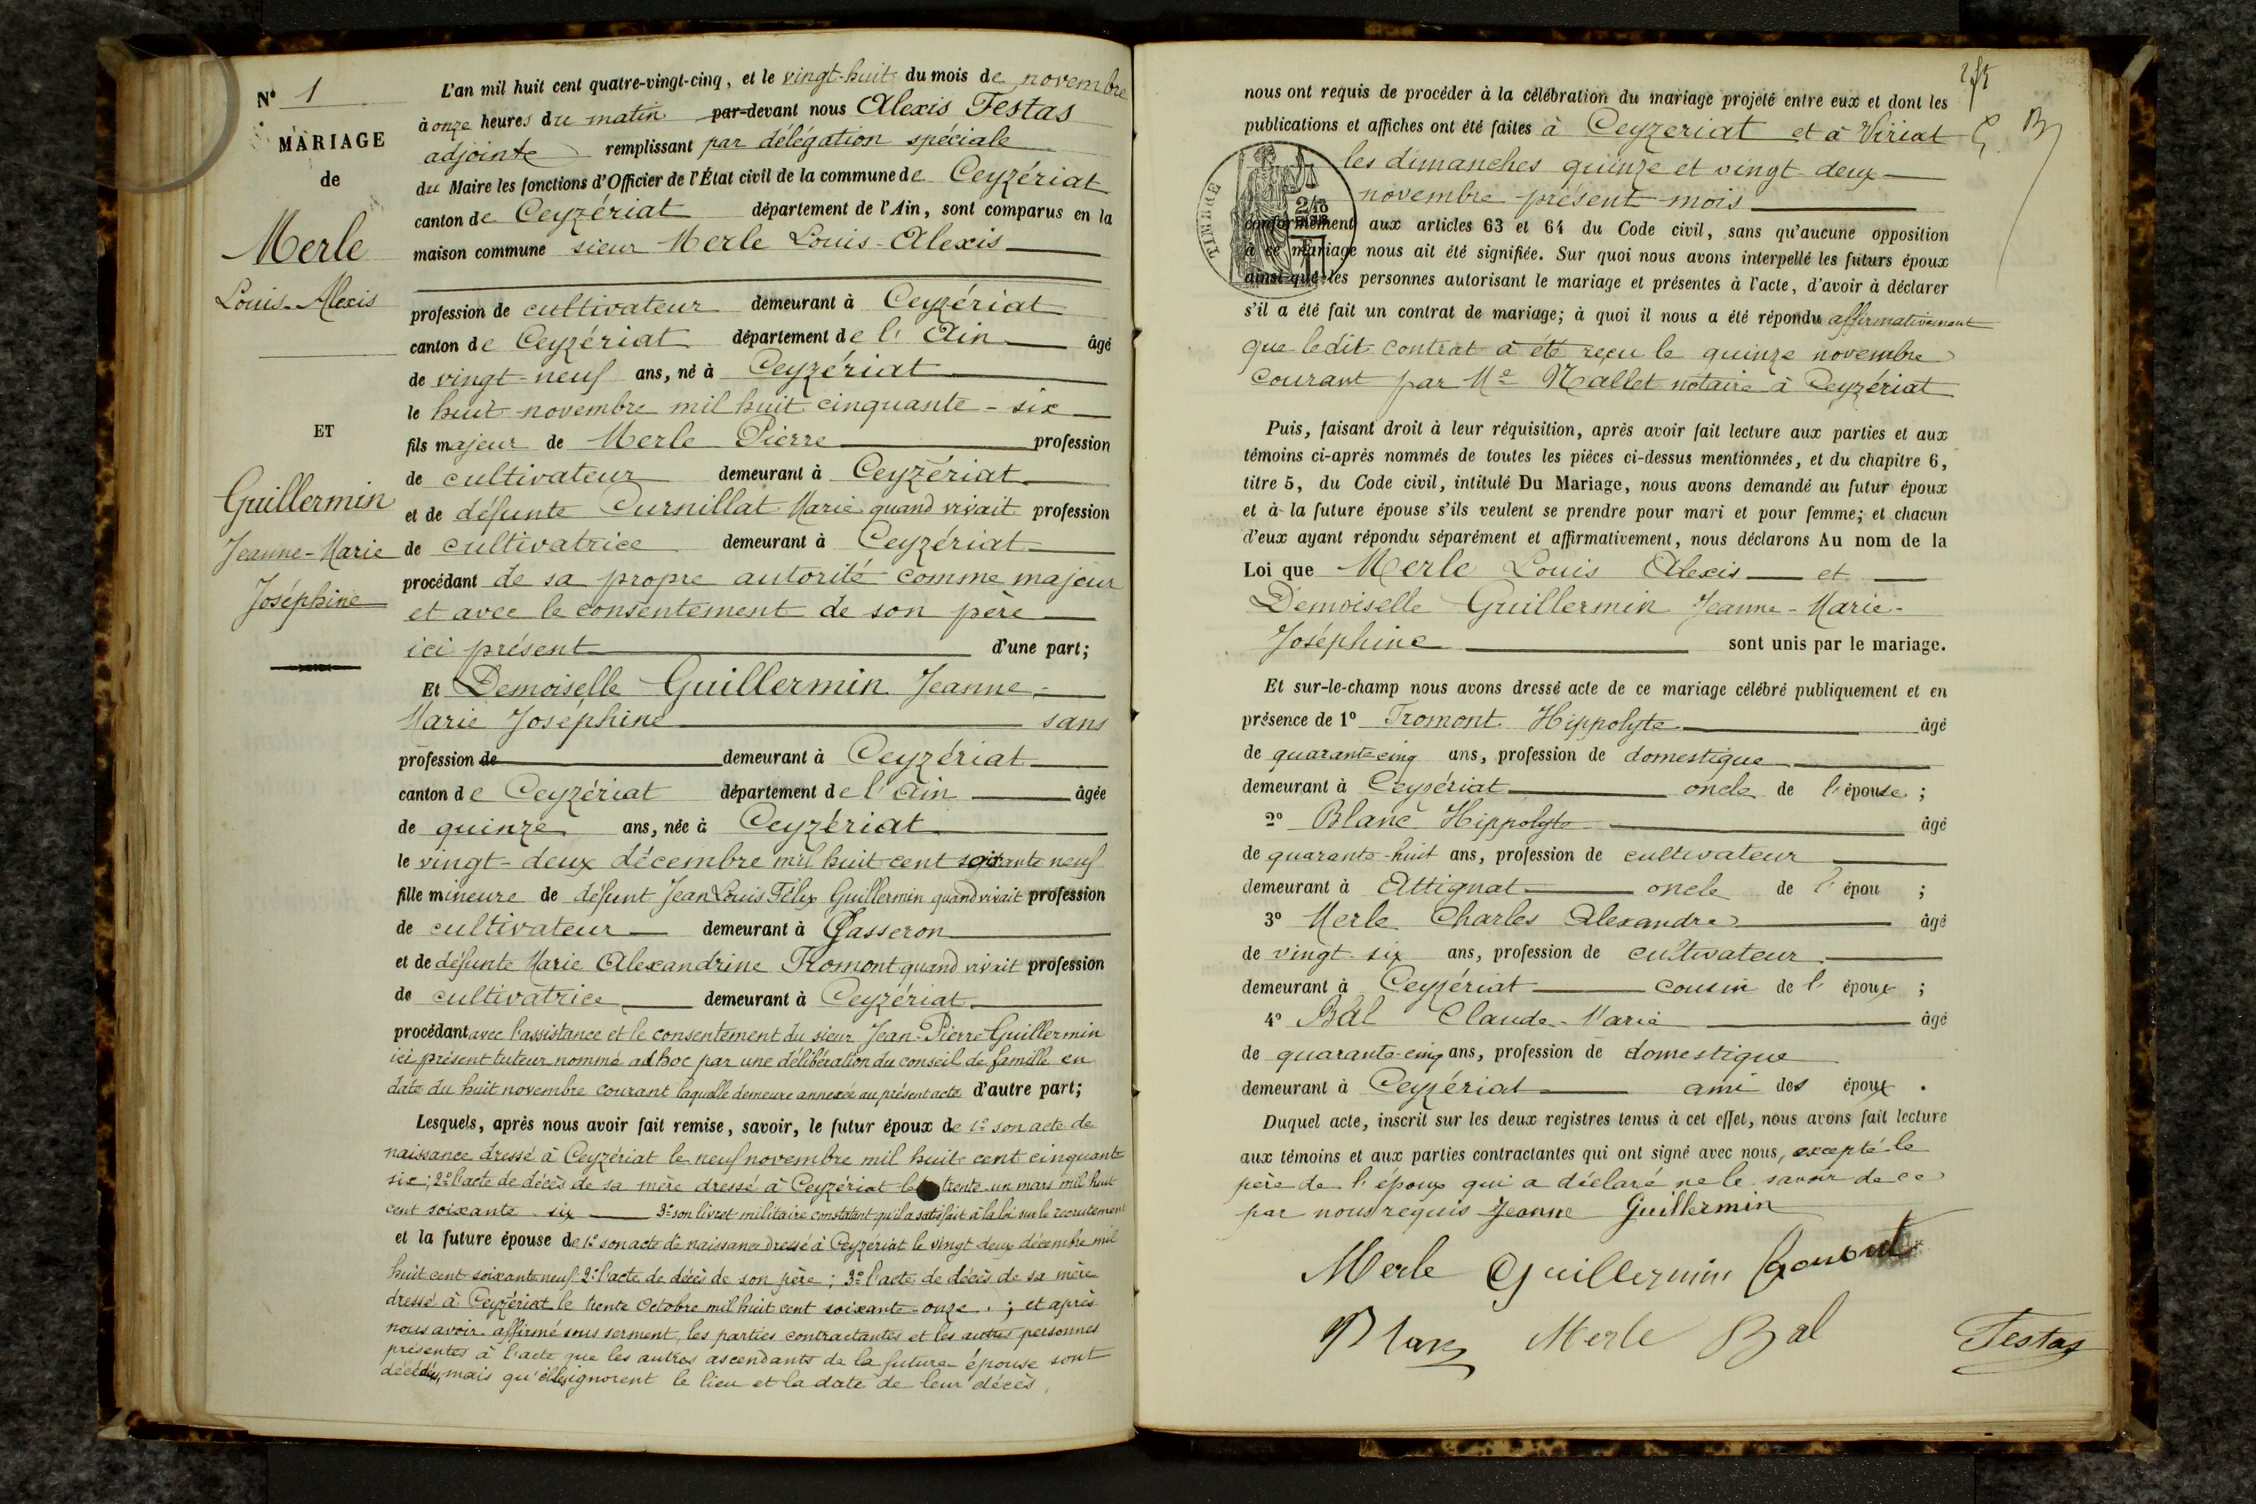 N° 1
MARIAGE
de
Merle
Louis-Alexis
ET
Guillermin
Jeanne-Marie
Joséphine
L'an mil huit cent quatre-vingt-cinq, et le vingt-huit du mois de novembre
à onze heures du matin par-devant nous Alexis Festas
adjoint remplissant par délégation spéciale
du Maire les fonctions d'Officier de l'État civil de la commune de Ceyzériat
canton de Ceyzériat département de l'Ain, sont comparus en la
maison commune sieur Merle Louis-Alexis
profession de cultivateur demeurant à Ceyzériat
canton de Ceyzériat département de l'Ain âgé
de vingt-neuf ans, né à Ceyzériat
le huit novembre mil huit cinquante-six
fils majeur de Merle Pierre profession
de cultivateur demeurant à Ceyzériat
et de défunte Curnillat Marie quand vivait profession
de cultivatrice demeurant à Ceyzériat
procédant de sa propre autorité comme majeur
et avec le consentement de son père
ici présent d'une part;
Et Demoiselle Guillermin Jeanne-
Marie Joséphine sans
profession de demeurant à Ceyzériat
canton de Ceyzériat département de l'Ain âgée
de quinze ans, née à Ceyzériat
le vingt-deux décembre mil huit cent soixante neuf
fille mineure de défunt Jean Louis Félix Guillermin quand vivait profession
de cultivateur demeurant à Gasseron
et de défunte Marie Alexandrine Fromont quand vivait profession
de cultivatrice demeurant à Ceyzériat
procédant avec l'assistance et le consentement du sieur Jean-Pierre Guillermin
ici présent tuteur nommé ad hoc par une délibération du conseil de famille en
date du huit novembre courant laquelle demeure annexée au présent acte d'autre part;
Lesquels, après nous avoir fait remise, savoir, le futur époux de 1° son acte de
naissance dressé à Ceyzériat le neuf novembre mil huit cent cinquante
six; 2° l'acte de décès de sa mère dressé à Ceyzériat le trente-un mars mil huit
cent soixante-six 3° son livret militaire constatant qu'il a satisfait à la loi sur le recrutement
et la future épouse de 1° son acte de naissance dressé à Ceyzériat le vingt deux décembre mil
huit cent soixante neuf 2° l'acte de décès de son père; 3° l'acte de décès de sa mère
dressé à Ceyzériat le trente Octobre mil huit cent soixante-onze.; et après
nous avoir affirmé sous serment, les parties contractantes et les autres personnes
présentes à l'acte que les autres ascendants de la future épouse sont
décédés, mais qu'elles ignorent le lieu et la date de leur décès,
nous ont requis de procéder à la célébration du mariage projeté entre eux et dont les
publications et affiches ont été faites à Ceyzeriat et à Viriat
les dimanches quinze et vingt deux
novembre présent mois
TIMBRE
conformément aux articles 63 et 64 du Code civil, sans qu'aucune opposition
à ce mariage nous ait été signifiée. Sur quoi nous avons interpellé les futurs époux
ainsi que les personnes autorisant le mariage et présentes à l'acte, d'avoir à déclarer
s'il a été fait un contrat de mariage; à quoi il nous a été répondu affirmativement
que ledit contrat a été reçu le quinze novembre
courant par Me Nallet notaire à Ceyzériat
Puis, faisant droit à leur réquisition, après avoir fait lecture aux parties et aux
témoins ci-après nommés de toutes les pièces ci-dessus mentionnées, et du chapitre 6,
titre 5, du Code civil, intitulé Du Mariage, nous avons demandé au futur époux
et à la future épouse s'ils veulent se prendre pour mari et pour femme; et chacun
d'eux ayant répondu séparément et affirmativement, nous déclarons Au nom de la
Loi que Merle Louis Alexis et
Demoiselle Guillermin Jeanne-Marie-
Joséphine sont unis par le mariage.
Et sur-le-champ nous avons dressé acte de ce mariage célébré publiquement et en
présence de 1° Fromont Hippolyte âgé
de quarante cinq ans, profession de domestique
demeurant à Ceyzériat oncle de l'épouse;
2° Blanc Hippolyte âgé
de quarante-huit ans, profession de cultivateur
demeurant à Attignat oncle de l'épou ;
3° Merle Charles Alexandre âgé
de vingt-six ans, profession de cultivateur
demeurant à Ceyzériat cousin de l'époux;
4° Bal Claude-Marie âgé
de quarante-cinq ans, profession de domestique
demeurant à Ceyzériat ami des époux.
Duquel acte, inscrit sur les deux registres tenus à cet effet, nous avons fait lecture
aux témoins et aux parties contractantes qui ont signé avec nous, excepté le
père de l'époux qui a déclaré ne le savoir de ce
par nous requis Jeanne Guillermin
Merle Guillermin Fromont
Blanc Merle Bal Festas